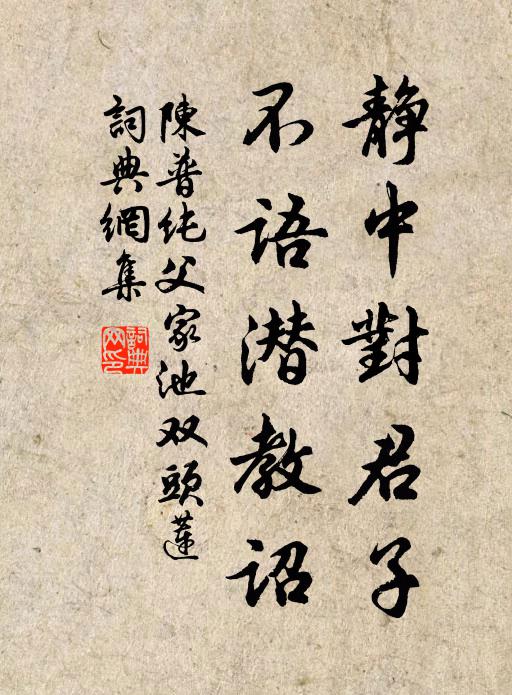 静中對君子
不語潜教詔
陳普純父家池双頭蓮
詞典網集
詞典网印